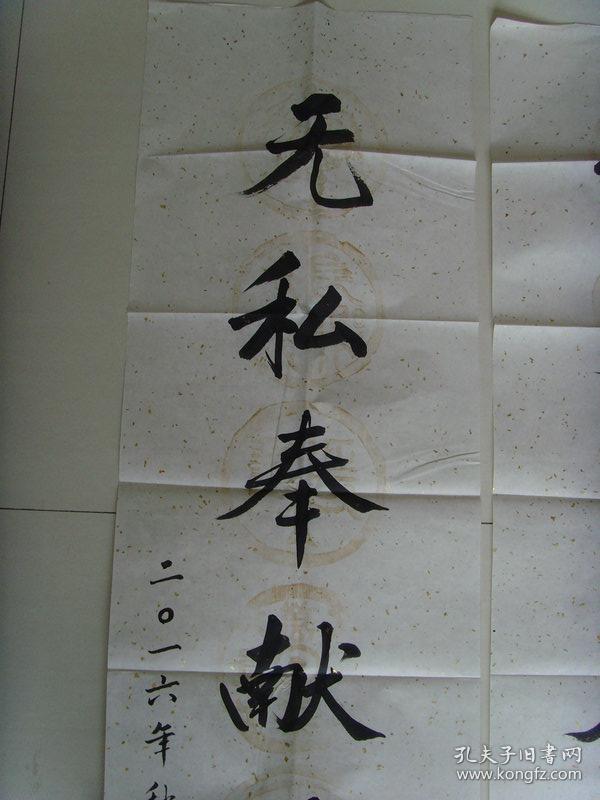 无私奉献
二〇一六年秋
孔夫子旧书网
www.kongfz.com